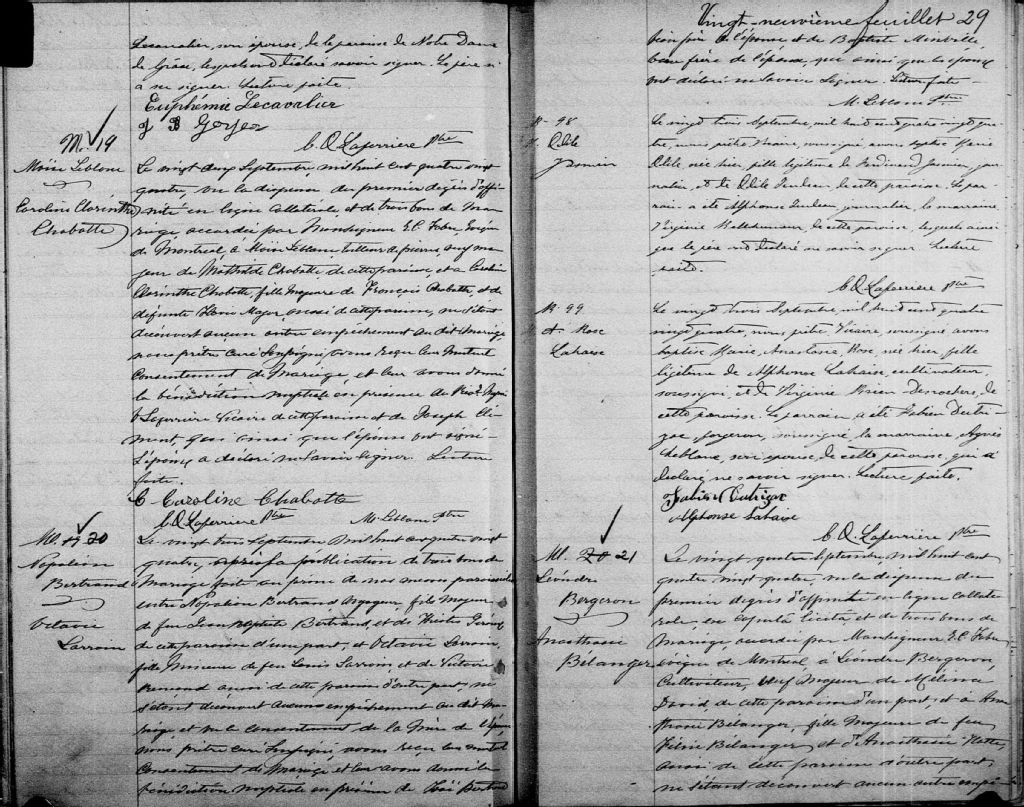 Lecavalier, son épouse, de la paroisse de Notre Dame
de Grâce, lesquels ont déclaré savoir signer. Le père n'
a su signer. Lecture faite.
Euphémie Lecavalier
J B Goyer
C. O. Laferrière Ptre
M. 19
Moïse Leblanc
Caroline Clorinthe
Chabotte
Le vingt deux Septembre mil huit cent quatre vingt
quatre, vu la dispense du premier degrés d'affi-
nité en ligne collaterale et de trois bans de ma-
riage accordée par Monseigneur E. C. Fabre, Evêque
de Montréal, à Moïse Leblanc, tailleur de pierre, veuf ma-
jeur de Mathilde Chabotte de cette paroisse, et a Caroline
Clorinthe Chabotte, fille majeure de François Chabotte, et de
défunte Major, aussi de cette paroisse, ne s'étant
découvert aucun autre empêchement au dit mariage,
nous prêtre curé Soussigné, avons reçu leur mutuel
Consentement de Mariage, et leur avons donné
la bénédiction nuptiale en presence du Revd
Laferrière Vicaire de cette paroisse et de Joseph Cle-
ment, ainsi que l'épouse ont signé
L'époux a déclaré ne Savoir Signer. Lecture
faite.
Caroline Chabotte
C. O. Laferrière Ptre M. Leblanc Ptre
M. 20
Napoléon
Bertrand
Octavie
Larrom
Le vingt trois Septembre mil huit cent quatre vingt
quatre, après la publication de trois bans de
Mariage faite au prône de nos messes paroissiales
entre Napoléon Bertrand, fils Majeur
de feu Jean Baptiste Bertrand, et de
de cette paroisse d'une part, et Octavie Larrom,
fille Mineure de feu Louis Larrom, et de Victoire
aussi de cette paroisse d'autre part, ne
s'étant découvert aucun empêchement au dit ma-
riage et vu le consentement de la Mère de l'épouse,
nous prêtre curé Soussigné, avons reçu leur mutuel
Consentement de Mariage et leur avons donné la
bénédiction nuptiale en présence de Bertrand
Vingt-neuvième feuillet 29
beau père de l'épouse et de Baptiste
beau frère de l'épouse, qui ainsi que les époux
ont déclaré ne Savoir Signer. Lecture faite
M. Leblanc Ptre
B. 98
M. Odile
Le vingt trois Septembre, mil huit cent quatre vingt qua-
tre, nous, prêtre Vicaire, soussigné avons baptisé Marie
Odile née hier, fille légitime de Ferdinand, jour-
nalier, et de Odile, de cette paroisse. Le par-
rain a été Alphonse, journalier, la marraine
Virginie, de cette paroisse, lesquels ainsi
que le père ont déclaré ne savoir signer. Lecture
faite.
C. O. Laferrière Ptre
B. 99
M. A. Rose
Lahaise
Le vingt trois Septembre, mil huit cent quatre
vingt quatre, nous, prêtre Vicaire, soussigné avons
baptisé Marie, Anastasie, Rose, née hier, fille
légitime de Alphonse Lahaise, cultivateur,
soussigné, et de Virginie Desrochers, de
cette paroisse. Le parrain, a été Fabien
forgeron, soussigné, la marraine, Agnès
Leblanc, son épouse, de cette paroisse, qui a
déclaré ne savoir signer. Lecture faite.
Alphonse Lahaise
C. O. Laferrière Ptre
M. 21
Léandre
Bergeron
Anasthasie
Bélanger
Le vingt quatre Septembre, mil huit cent
quatre vingt quatre, vu la dispense du
premier degrés d'affinité en ligne collaté-
rale, ex copulâ licitâ, et de trois bans de
mariage, accordée par Monseigneur E. C. Fabre
évêque de Montréal, à Léandre Bergeron,
Cultivateur, veuf Majeur de Mélina
David, de cette paroisse d'une part, et à Ana-
sthasie Bélanger, fille Majeure de feu
Bélanger et d'Anasthasie
aussi de cette paroisse d'autre part,
ne s'étant découvert aucun autre empê-